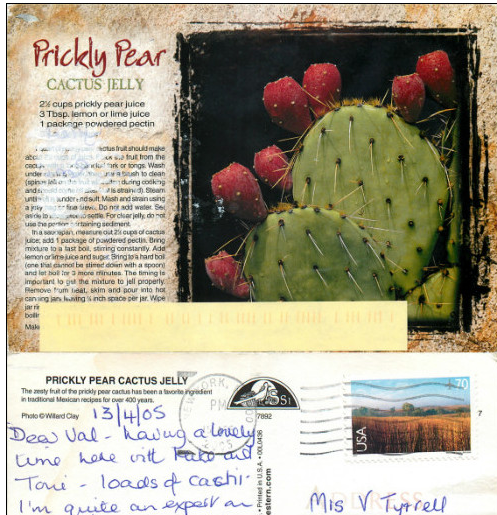 Prickly Pear
CACTUS JELLY
2½ cups prickly pear juice
3 Tbsp. lemon or lime juice
1 package powdered pectin
cactus fruit should make
fruit from the
or tongs. Wash
a brush to clean
during cooking
is strained). Steam
and soft. Mash and strain using
Do not add water. Set
to settle. For clear jelly, do not
use the portion containing sediment.
In a saucepan, measure out 2½ cups of cactus
juice; add 1 package of powdered pectin. Bring
mixture to a fast boil, stirring constantly. Add
lemon or lime juice and sugar. Bring to a hard boil
(one that cannot be stirred down with a spoon)
and let boil for 3 more minutes. The timing is
important to get the mixture to jell properly.
Remove from heat, skim and pour into hot
canning jars leaving ½ inch space per jar. Wipe
jar
PRICKLY PEAR CACTUS JELLY
The zesty fruit of the prickly pear cactus has been a favorite ingredient
in traditional Mexican recipes for over 400 years.
Photo © Willard Clay
13/4/05
Dear Val - having a lovely
time here with and
- loads of
I'm quite an expert on
YORK,
PM
7892
• Printed in U.S.A. •
estern.com
70
USA
7
Mis V Tyrrell